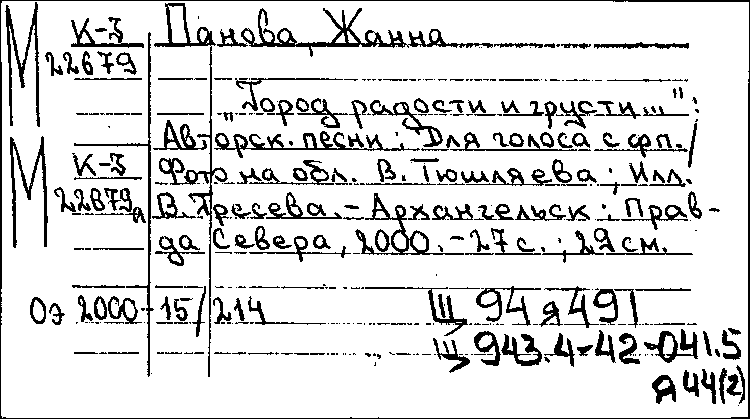 М К-3 Панова, Жанна
22679
„Город радости и грусти...":
Авторск. песни: Для голоса с фп./
М К-3 Фото на обл. В. Тюшляева; Илл.
22679а В. Аресева. - Архангельск: Прав-
да Севера, 2000. - 27 с.; 29 см.
Оэ 2000-15/214 Щ 94 я 491
Щ 943.4-42-041.5
я 44(2)